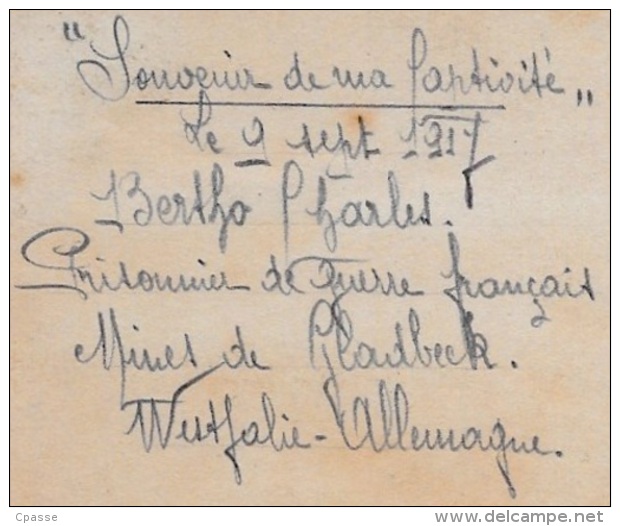 "Souvenir de ma Captivité"
Le 9 sept 1917
Bertho Charles.
Prisonnier de Guerre français
Mines de Gladbeck.
Westfalie - Allemagne.
Cpasse
www.delcampe.net